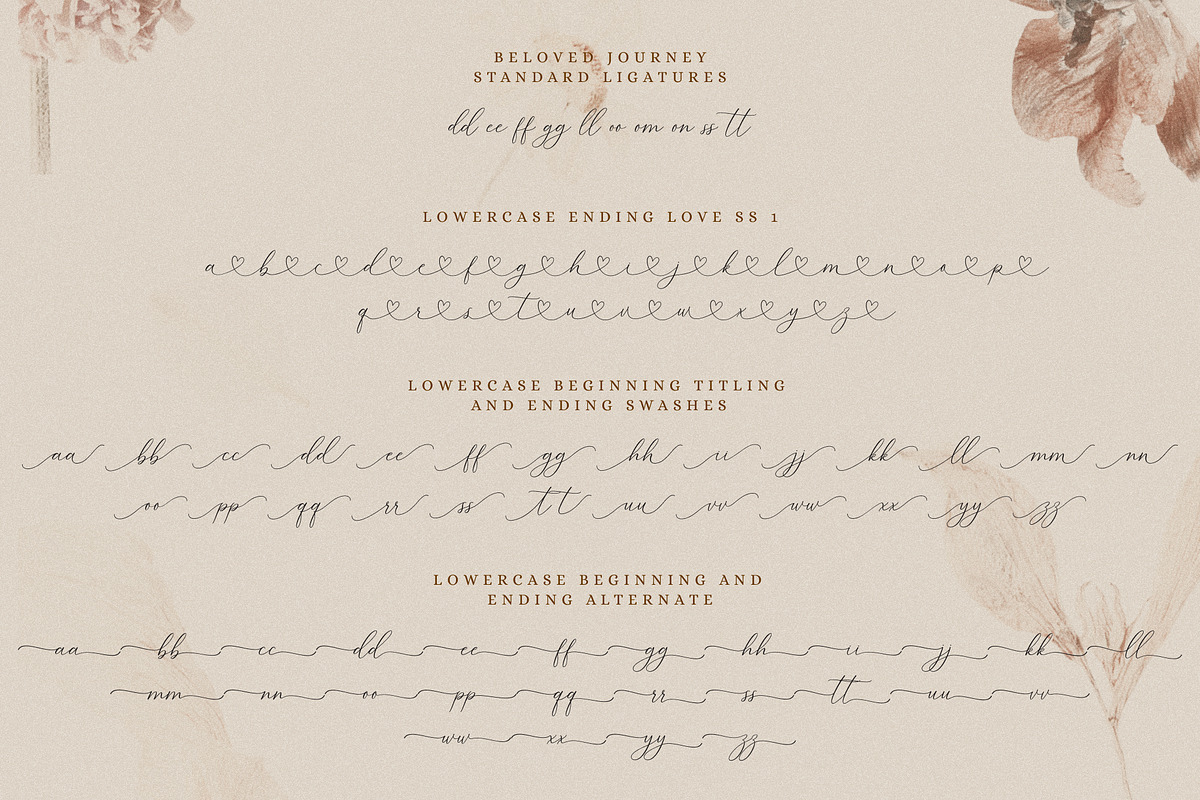 BELOVED JOURNEY
STANDARD LIGATURES
dd ee ff gg ll oo om on ss tt
LOWERCASE ENDING LOVE SS 1
a b c d e f g h i j k l m n o p
q r s t u v w x y z
LOWERCASE BEGINNING TITLING
AND ENDING SWASHES
aa bb cc dd ee ff gg hh ii jj kk ll mm nn
oo pp qq rr ss tt uu vv ww xx yy zz
LOWERCASE BEGINNING AND
ENDING ALTERNATE
aa bb cc dd ee ff gg hh ii jj kk ll
mm nn oo pp qq rr ss tt uu vv
ww xx yy zz